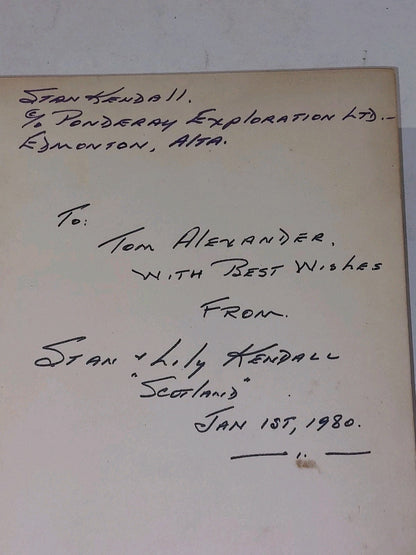 Stan Kendall.
c/o Ponderay Exploration Ltd.–
Edmonton, Alta.
To:
Tom Alexander.
With Best Wishes
From.
Stan & Lily Kendall
"Scotland"
Jan 1st, 1980.